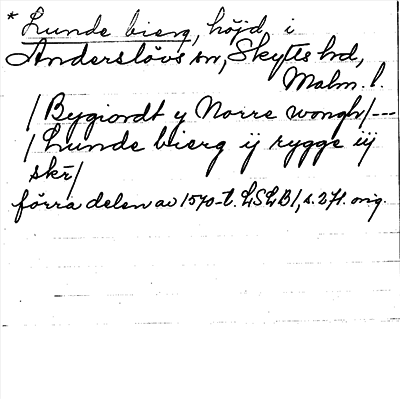 * Lunde bierg, höjd, i
Anderslövs sn, Skytts hd,
Malm. l.
/Bygiordt y Norre wongh/---
/Lunde bierg ij rygge iij
skr/
förra delen av 1570-t. LSLB 1, s. 271. orig.